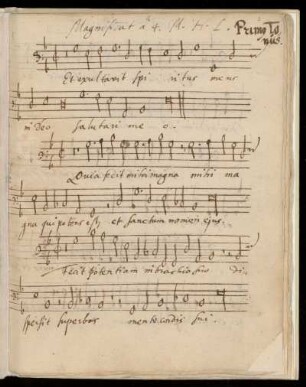 Magnificat à 4. M. H. L. Primo To
nus.
Et exultavit spi ritus meus
in deo salutari me o.
Quia fecit mihi magna mihi ma
gna qui potens est et sanctum nomen ejus.
Fecit potentiam in brachio suo di
spersit superbos mente cordis sui.